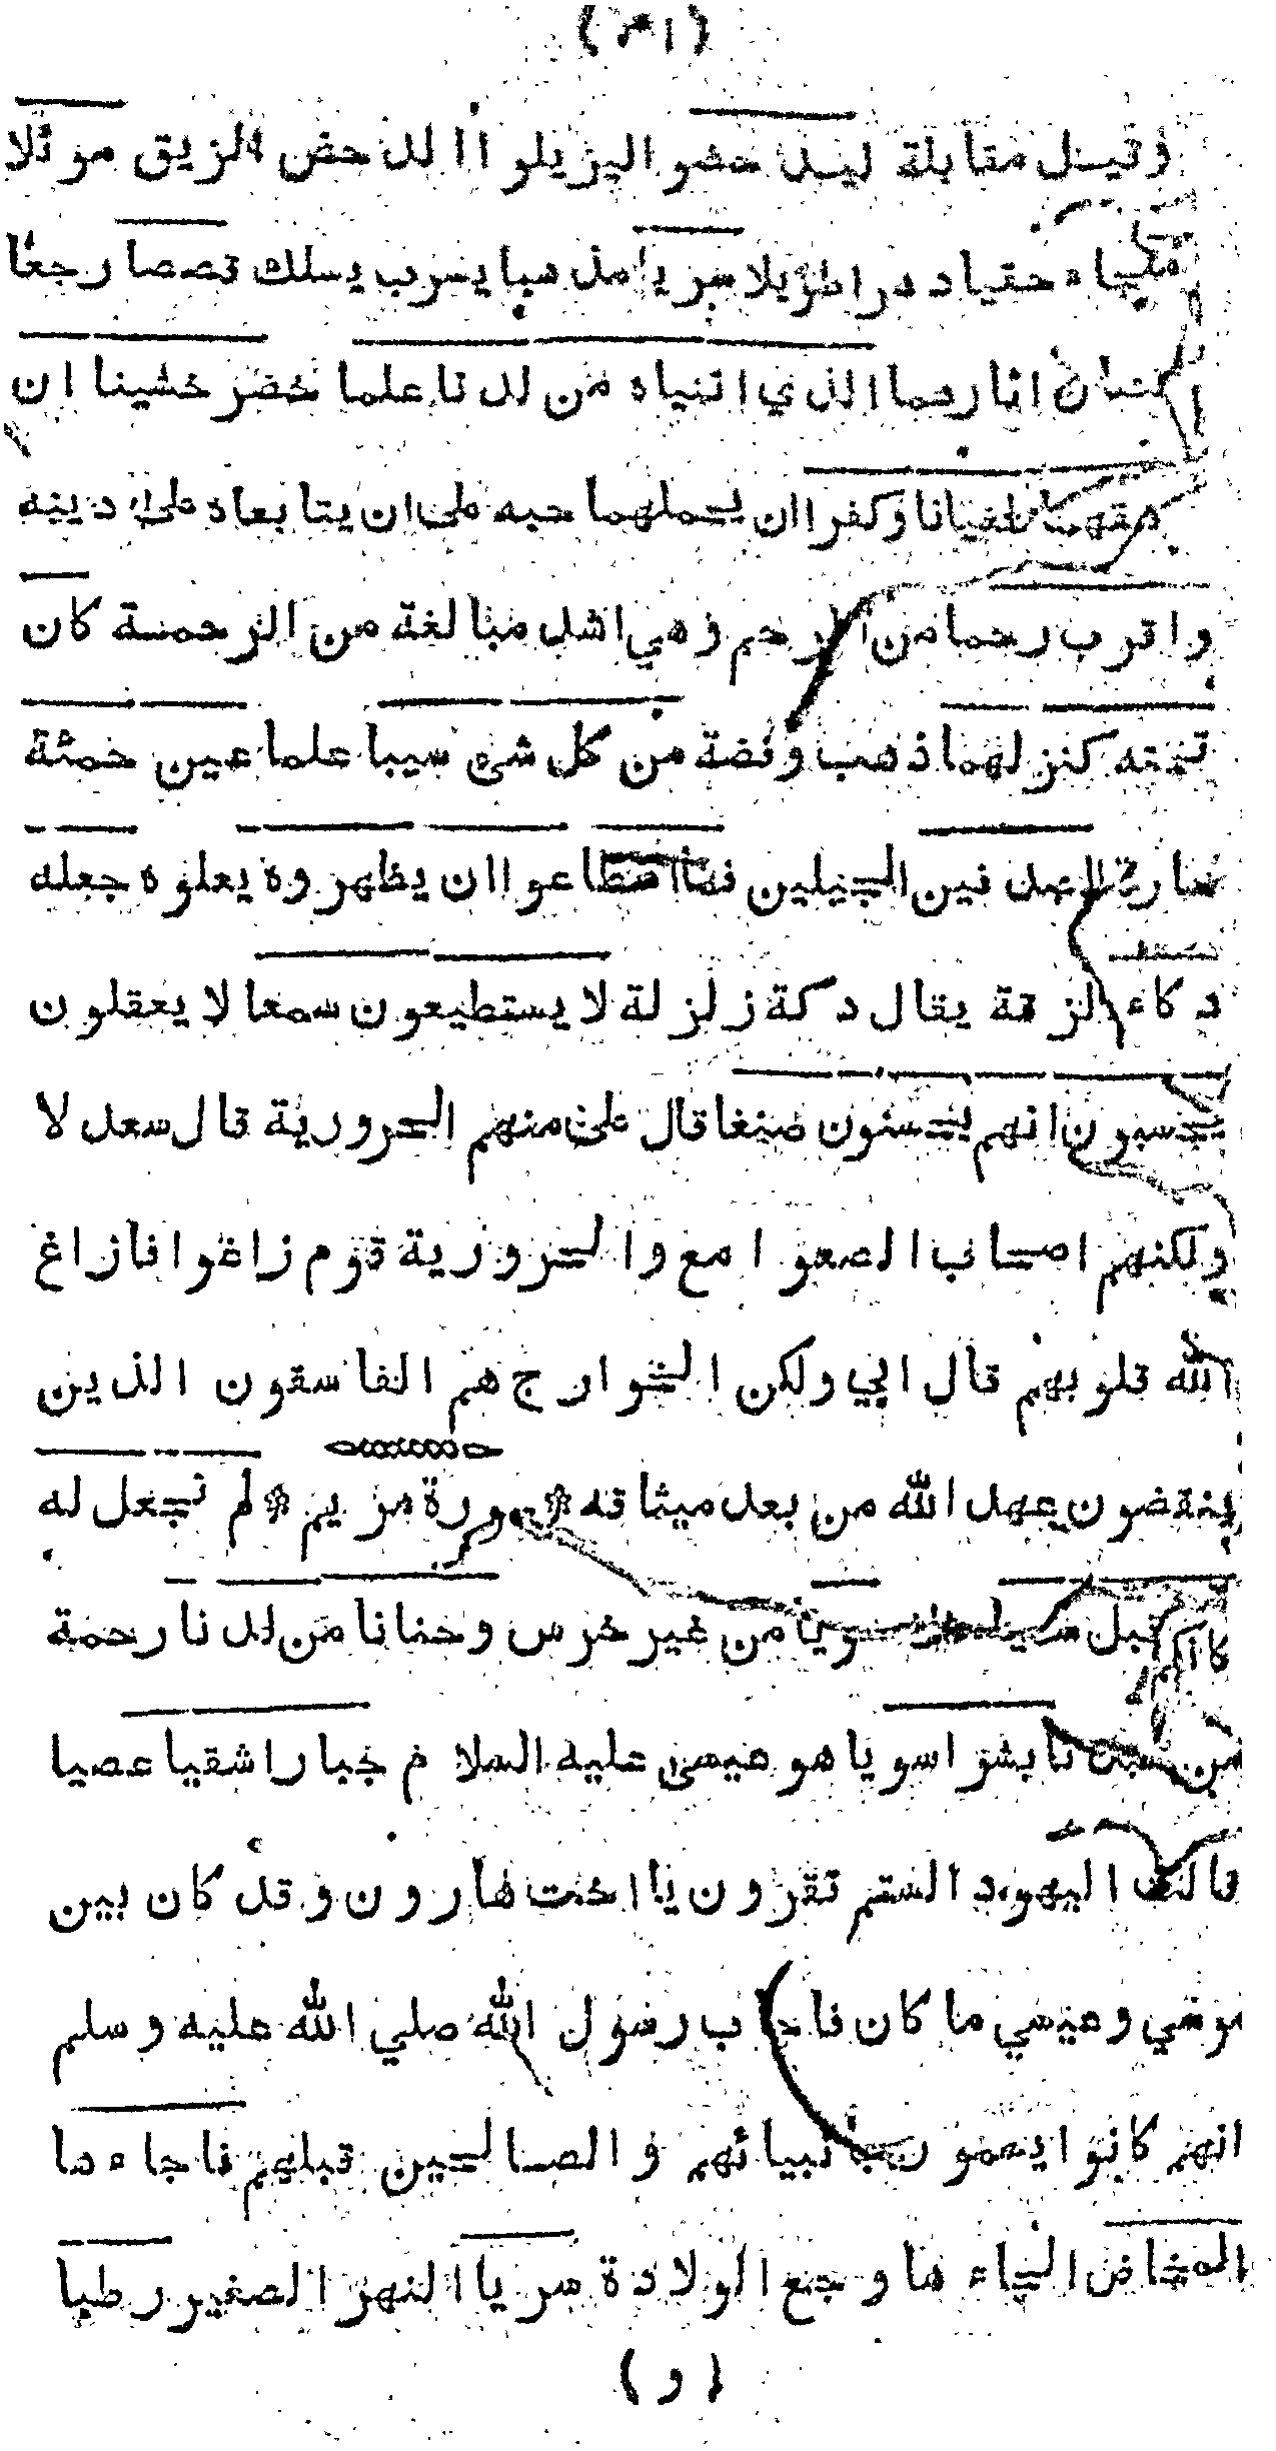 وقيل مقابلة ليد حضوا ليزيلوا الدحض الزلق موئلا
ملجاء حقبا دهرا طويلا سربا مذهبا يسرب يسلك قصصا رجعا
انارهما الذي اتنياه من لدنا علما خضر خشينا ان
طغيانا وكفرا ان يحملهما حبه على ان يتابعاه على دينه
واقرب رحما من الرحم وهي اشد مبالغة من الرحمة كان
تحته كنز لهما ذهب وفضة من كل شيء سببا علما عين حمئة
حارة الصدفين الجبلين فما اسطاعوا ان يظهروه يعلوه جعله
دكاء لزقة يقال دكة زلزلة لا يستطيعون سمعا لا يعقلون
يحسبون انهم يحسنون صنعا قال علي منهم الحرورية قال سعد لا
ولكنهم اصحاب الصعوامع والحرورية قوم زاغوا فازاغ
الله قلوبهم قال ابي ولكن الخوارج هم الفاسقون الذين
ينقضون عهد الله من بعد ميثاقه * سورة مريم * لم نجعل له
قبل سويا من غير خرس وحنانا من لدنا رحمة
من عندنا بشرا سويا هو عيسى عليه السلام جبارا شقيا عصيا
قالت اليهود الستم تقرون يا اخت هارون وقد كان بين
موسي وعيسي ما كان فاجاب رسول الله صلي الله عليه وسلم
انهم كانوا يسمون بانبيائهم والصالحين قبلهم فاجاءها
المخاض الجاءها وجع الولادة سريا النهر الصغير رطبا
(و)